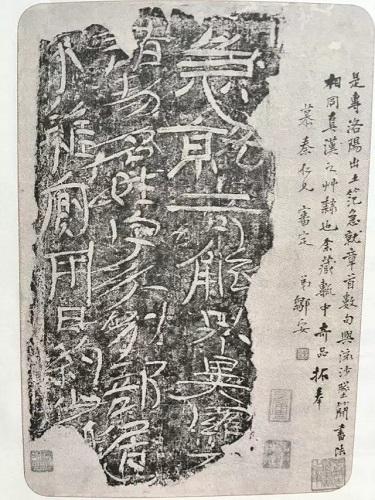 是專洛陽出土範急就章首數句與流沙墜簡書法
相同真漢之艸隸也余藏甎中奇品拓奉
慕秦仁兄 審定 弟鄒安
急就奇觚與眾異羅
諸物名姓字分別部居
不雜廁用日約少